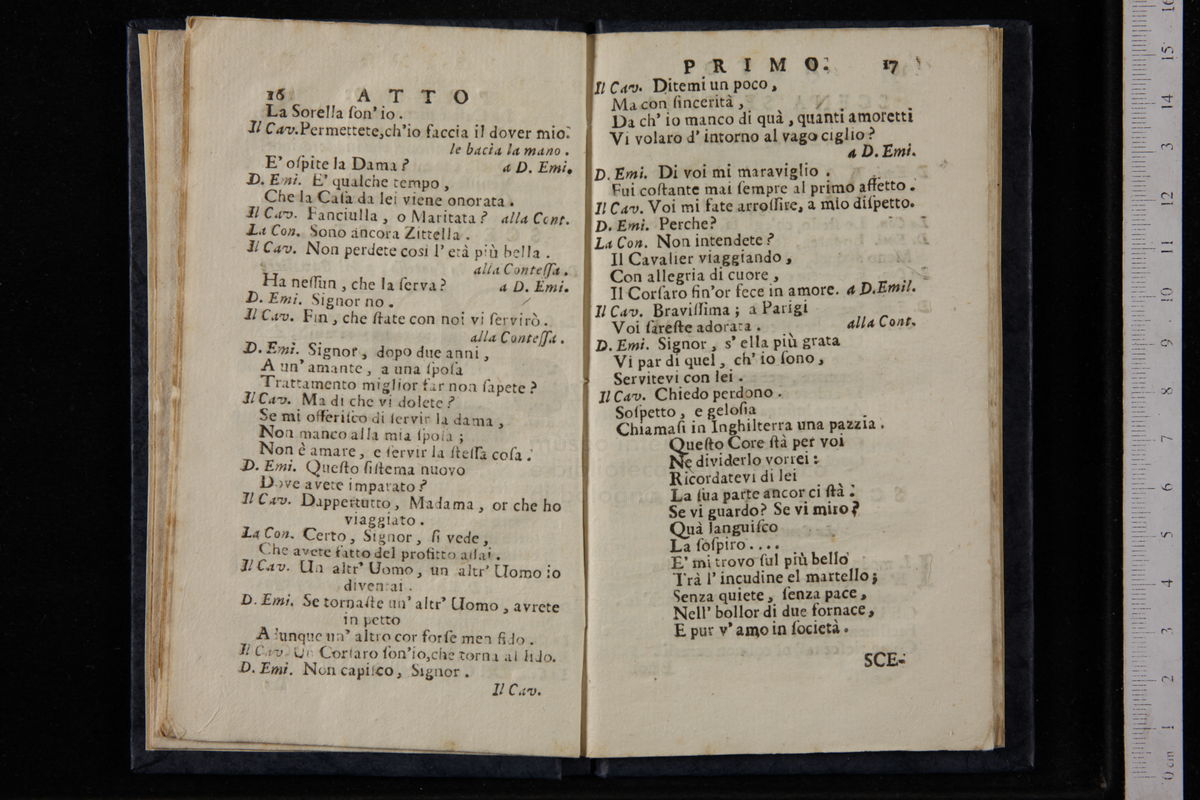 16 ATTO
La Sorella ſon' io.
Il Cav. Permettete, ch'io faccia il dover mio.
le bacia la mano.
E' oſpite la Dama? a D. Emi.
D. Emi. E' qualche tempo,
Che la Caſa da lei viene onorata.
Il Cav. Fanciulla, o Maritata? alla Cont.
La Con. Sono ancora Zittella.
Il Cav. Non perdete così l' età più bella.
alla Conteſſa.
Ha neſſun, che la ſerva? a D. Emi.
D. Emi. Signor no.
Il Cav. Fin, che ſtate con noi vi ſervirò.
alla Conteſſa.
D. Emi. Signor, dopo due anni,
A un' amante, a una ſpoſa
Trattamento miglior far non ſapete?
Il Cav. Ma di che vi dolete?
Se mi offeriſco di ſervir la dama,
Non manco alla mia ſpoſa;
Non è amare, e ſervir la ſteſſa coſa.
D. Emi. Queſto ſiſtema nuovo
Dove avete imparato?
Il Cav. Dappertutto, Madama, or che ho
viaggiato.
La Con. Certo, Signor, ſi vede,
Che avete fatto del profitto aſſai.
Il Cav. Un altr' Uomo, un altr' Uomo io
diventai.
D. Emi. Se tornaſte un' altr' Uomo, avrete
in petto
Adunque un' altro cor forſe men fido.
Il Cav. Un Corſaro ſon'io, che torna al lido.
D. Emi. Non capiſco, Signor.
Il Cav.
PRIMO. 17
Il Cav. Ditemi un poco,
Ma con ſincerità,
Da ch' io manco di quà, quanti amoretti
Vi volaro d' intorno al vago ciglio?
a D. Emi.
D. Emi. Di voi mi maraviglio.
Fui coſtante mai ſempre al primo affetto.
Il Cav. Voi mi fate arroſſire, a mio diſpetto.
D. Emi. Perche?
La Con. Non intendete?
Il Cavalier viaggiando,
Con allegria di cuore,
Il Corſaro fin'or fece in amore. a D. Emil.
Il Cav. Braviſſima; a Parigi
Voi ſareſte adorata. alla Cont.
D. Emi. Signor, s' ella più grata
Vi par di quel, ch' io ſono,
Servitevi con lei.
Il Cav. Chiedo perdono.
Soſpetto, e geloſia
Chiamaſi in Inghilterra una pazzia.
Queſto Core ſtà per voi
Ne dividerlo vorrei:
Ricordatevi di lei
La ſua parte ancor ci ſtà.
Se vi guardo? Se vi miro?
Quà languiſco
La ſoſpiro....
E' mi trovo ſul più bello
Trà l' incudine el martello;
Senza quiete, ſenza pace,
Nell' bollor di due fornace,
E pur v' amo in ſocietà.
SCE-